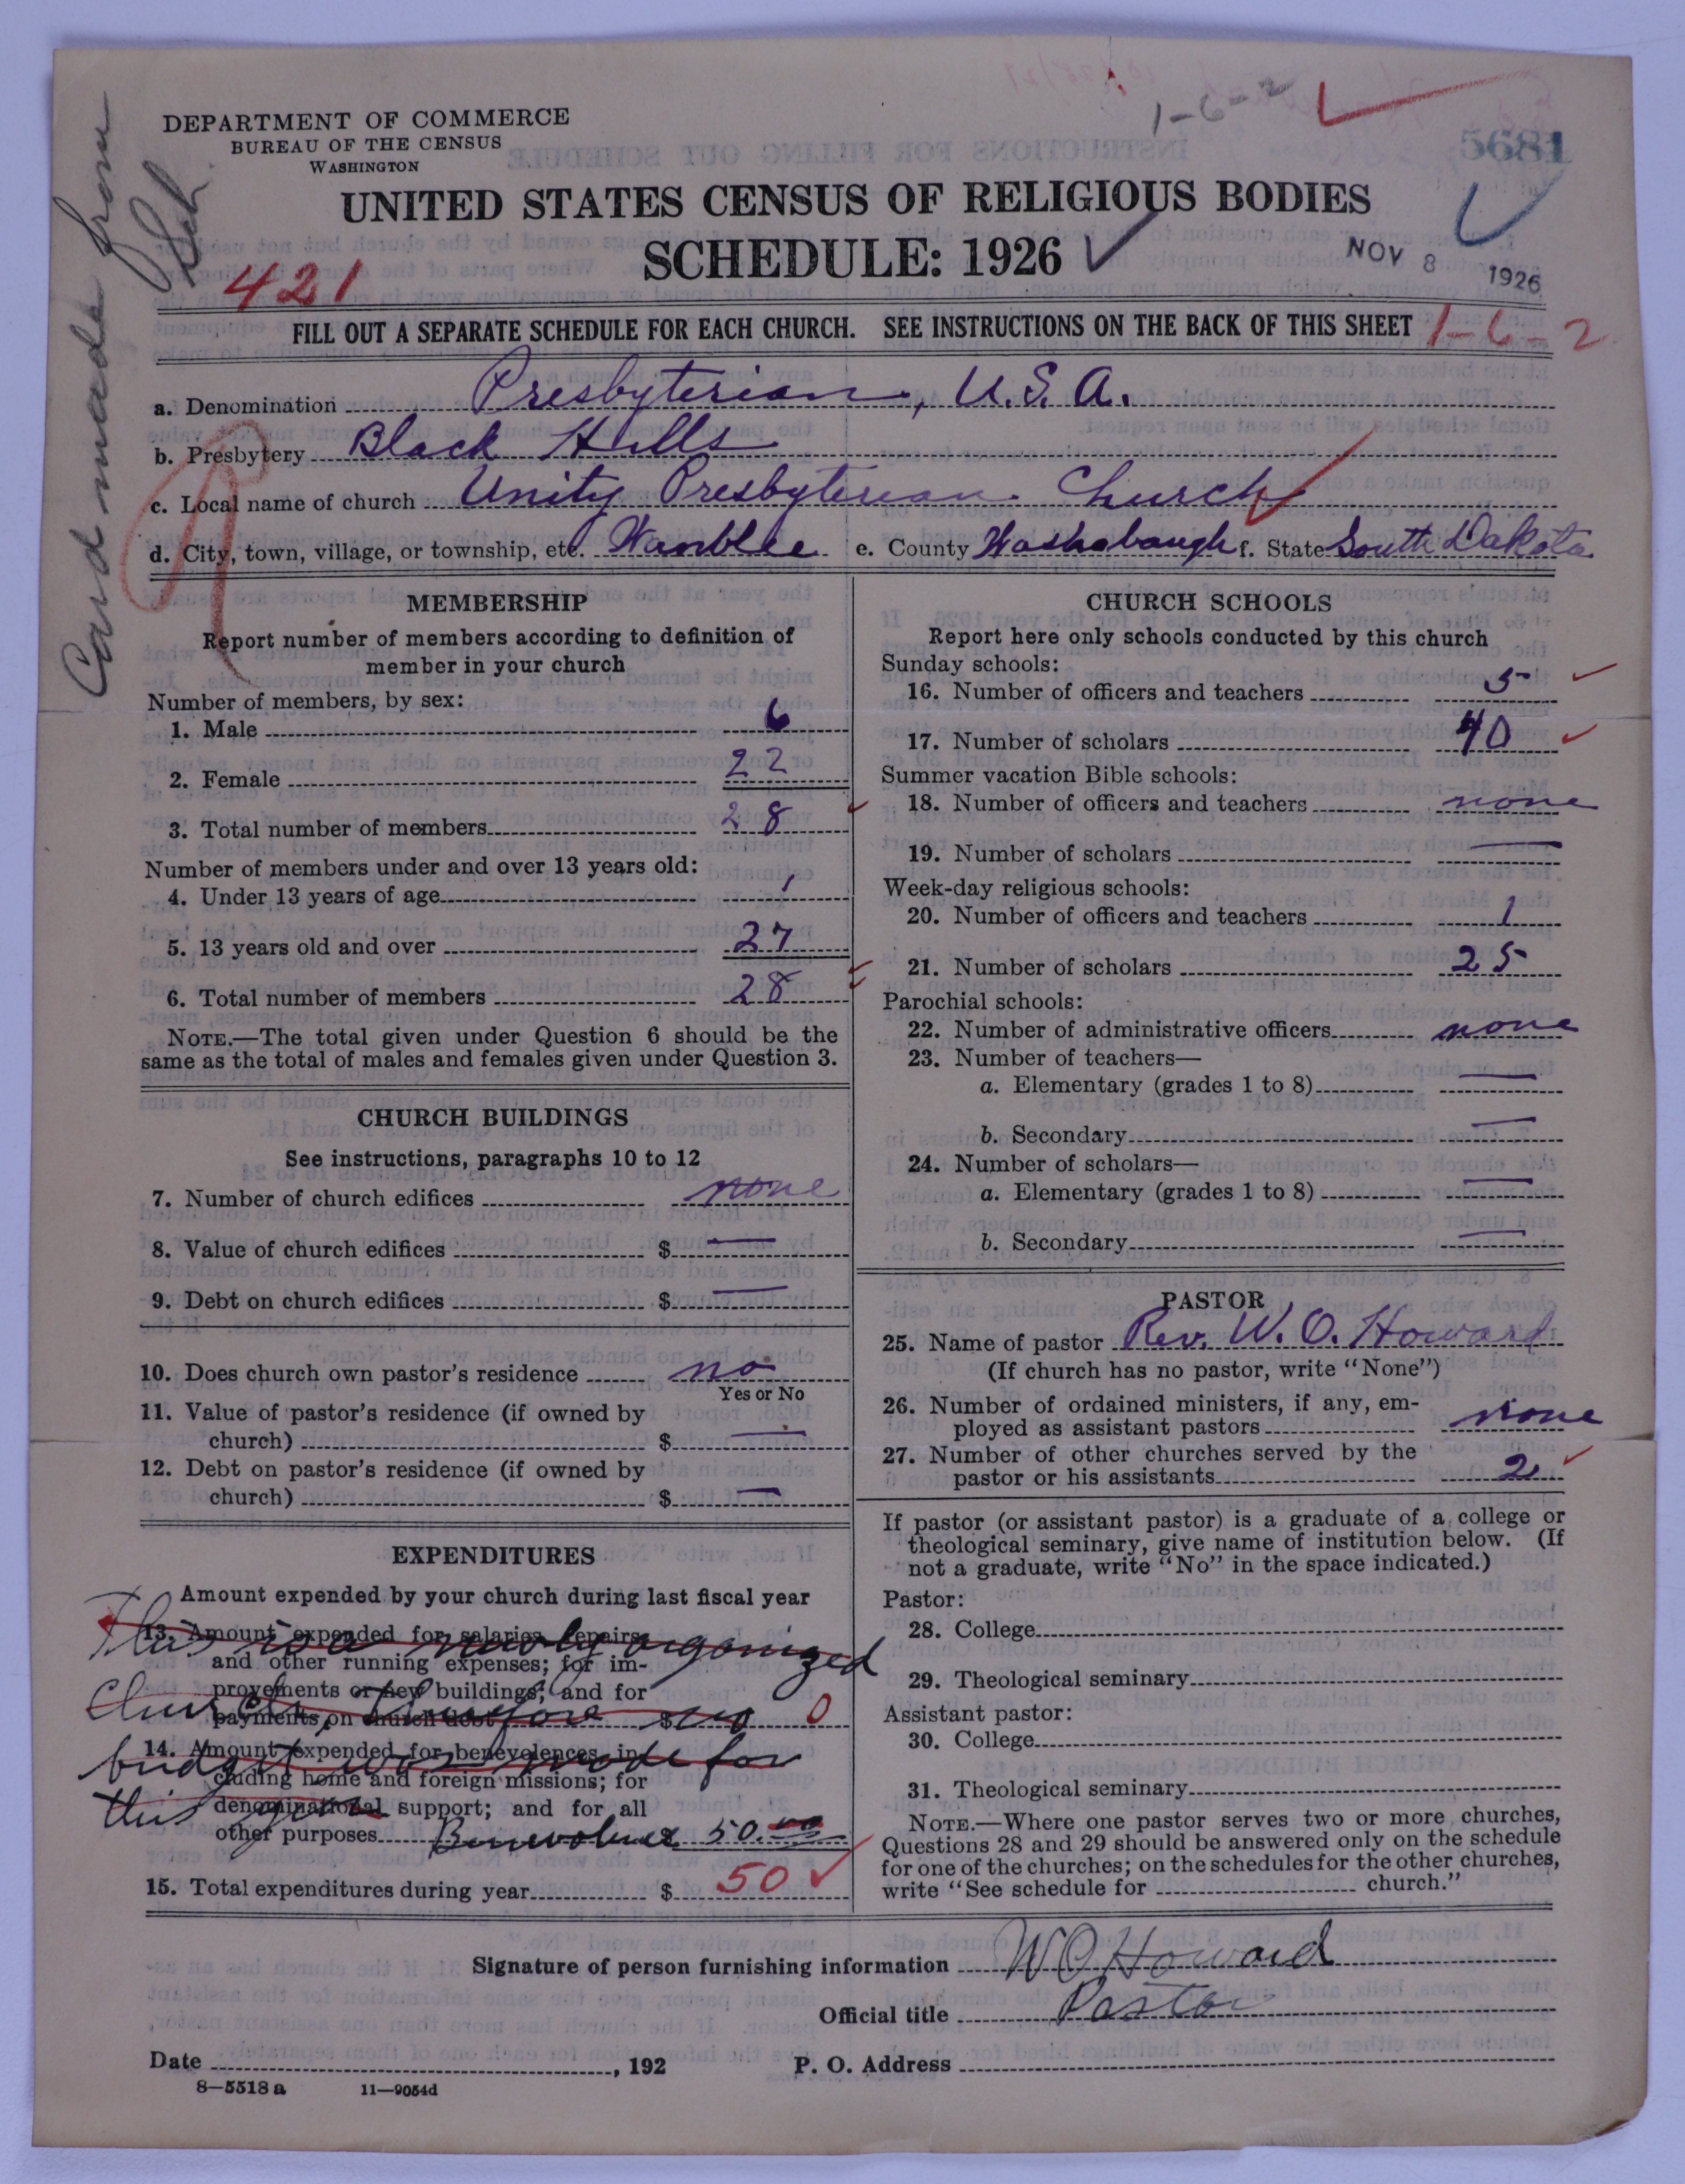 1-6-2
DEPARTMENT OF COMMERCE
BUREAU OF THE CENSUS
WASHINGTON
5681
UNITED STATES CENSUS OF RELIGIOUS BODIES
SCHEDULE: 1926
NOV 8 1926
Card made from
Sch.
421
FILL OUT A SEPARATE SCHEDULE FOR EACH CHURCH. SEE INSTRUCTIONS ON THE BACK OF THIS SHEET 1-6-2
a. Denomination Presbyterian, U.S.A.
b. Presbytery Black Hills
c. Local name of church Unity Presbyterian Church
d. City, town, village, or township, etc. Wanblee e. County Washabaugh f. State South Dakota
MEMBERSHIP
Report number of members according to definition of
member in your church
Number of members, by sex:
1. Male 6
2. Female 22
3. Total number of members 28
Number of members under and over 13 years old:
4. Under 13 years of age 1
5. 13 years old and over 27
6. Total number of members 28
NOTE.—The total given under Question 6 should be the
same as the total of males and females given under Question 3.
CHURCH BUILDINGS
See instructions, paragraphs 10 to 12
7. Number of church edifices none
8. Value of church edifices $ —
9. Debt on church edifices $ —
10. Does church own pastor's residence no
Yes or No
11. Value of pastor's residence (if owned by
church) $ —
12. Debt on pastor's residence (if owned by
church) $ —
EXPENDITURES
Amount expended by your church during last fiscal year
13. Amount expended for salaries, repairs,
This is a newly organized
and other running expenses; for im-
provements or new buildings; and for
Church, Therefore no
payments on church debt $ 0
14. Amount expended for benevolences, in-
budget was made for
cluding home and foreign missions; for
this year
denominational support; and for all
other purposes Benevolence 50.00
15. Total expenditures during year $ 50
CHURCH SCHOOLS
Report here only schools conducted by this church
Sunday schools:
16. Number of officers and teachers 5
17. Number of scholars 40
Summer vacation Bible schools:
18. Number of officers and teachers none
19. Number of scholars —
Week-day religious schools:
20. Number of officers and teachers 1
21. Number of scholars 25
Parochial schools:
22. Number of administrative officers none
23. Number of teachers—
a. Elementary (grades 1 to 8) —
b. Secondary —
24. Number of scholars—
a. Elementary (grades 1 to 8) —
b. Secondary —
PASTOR
25. Name of pastor Rev. W. O. Howard
(If church has no pastor, write "None")
26. Number of ordained ministers, if any, em-
ployed as assistant pastors none
27. Number of other churches served by the
pastor or his assistants 2
If pastor (or assistant pastor) is a graduate of a college or
theological seminary, give name of institution below. (If
not a graduate, write "No" in the space indicated.)
Pastor:
28. College
29. Theological seminary
Assistant pastor:
30. College
31. Theological seminary
NOTE.—Where one pastor serves two or more churches,
Questions 28 and 29 should be answered only on the schedule
for one of the churches; on the schedules for the other churches,
write "See schedule for church."
Signature of person furnishing information W O Howard
Official title Pastor
Date , 192 P. O. Address
8—5518 a 11—9054d